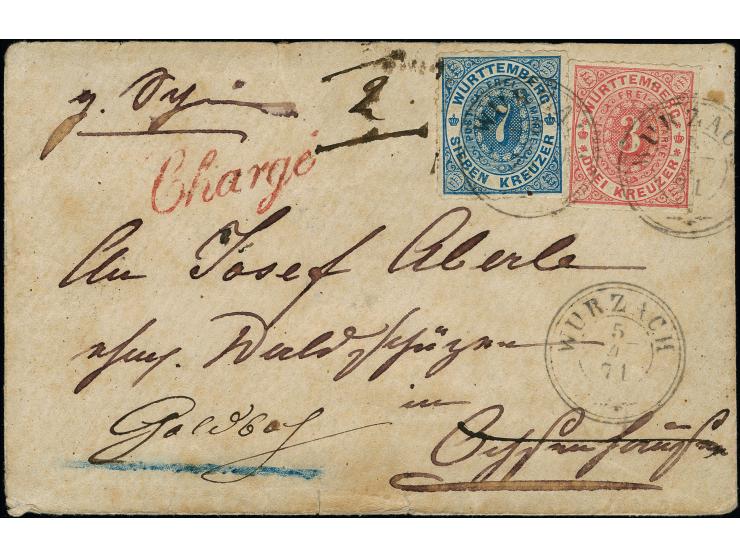 2.
WÜRTTEMBERG
FREI
7
SIEBEN KREUZER
WÜRTTEMBERG
FREI
3
DREI KREUZER
WURZACH
Chargé
An Josef Aberle
WURZACH
5
4
71
Waldschützen
in
Goldbach
Ochsenhausen